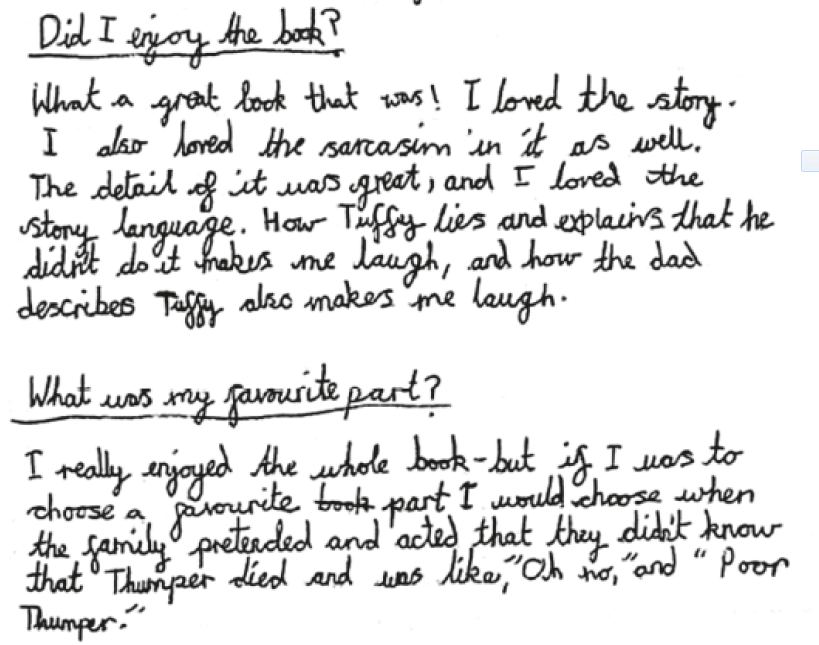 Did I enjoy the book?
What a great book that was! I loved the story.
I also loved the sarcasim in it as well.
The detail of it was great, and I loved the
story language. How Tuffy lies and explains that he
didn't do it makes me laugh, and how the dad
describes Tuffy also makes me laugh.
What was my favourite part?
I really enjoyed the whole book - but if I was to
choose a favourite book part I would choose when
the family pretended and acted that they didn't know
that Thumper died and was like, "Oh no," and " Poor
Thumper."